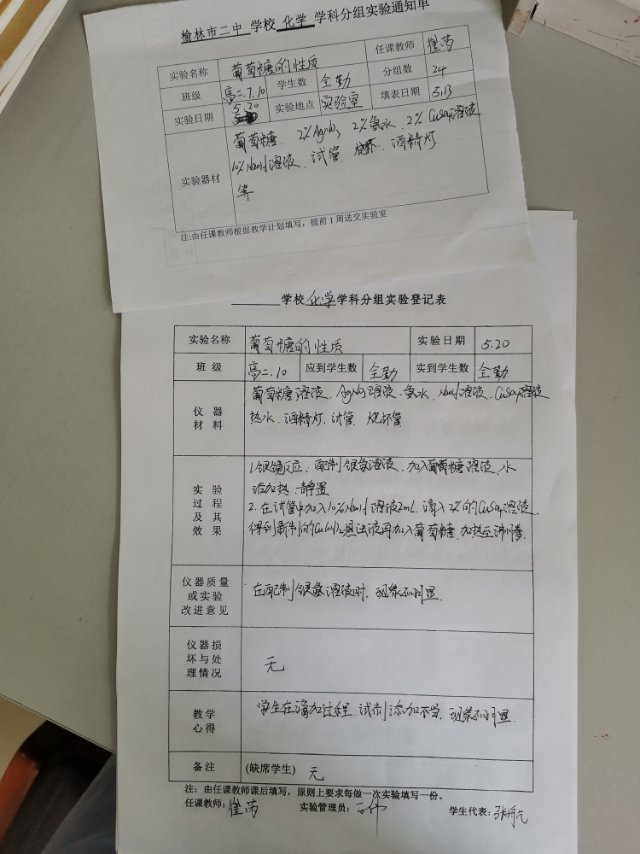 榆林市二中 学校 化学 学科分组实验通知单
实验名称 葡萄糖的性质 任课教师 崔芮
班级 高二.7.10 学生数 全勤 分组数 24
实验日期 5.20 实验地点 实验室 填表日期 5.13
实验器材 葡萄糖、2%AgNO3 2%氨水、2%CuSO4溶液
10%NaOH溶液、试管、烧杯、酒精灯
等
注:由任课教师根据教学计划填写，提前1周送交实验室
学校 化学 学科分组实验登记表
实验名称 葡萄糖的性质 实验日期 5.20
班级 高二.10 应到学生数 全勤 实到学生数 全勤
仪器材料 葡萄糖溶液、AgNO3溶液、氨水、NaOH溶液、CuSO4溶液
热水、酒精灯、试管、烧杯等
实验过程及其效果 1.银镜反应、配制银氨溶液、加入葡萄糖溶液、水
浴加热、静置
2.在试管中加入10%NaOH溶液2mL、滴入2%的CuSO4溶液、
得到新制的Cu(OH)2悬浊液再加入葡萄糖、加热至沸腾
仪器质量或实验改进意见 在配制银氨溶液时、现象不明显
仪器损坏与处理情况 无
教学心得 学生在滴加过程、试剂添加不当、现象不明显
备注 (缺席学生) 无
注：由任课教师课后填写，原则上要求每做一次实验填写一份。
任课教师: 崔芮 实验管理员: 学生代表: